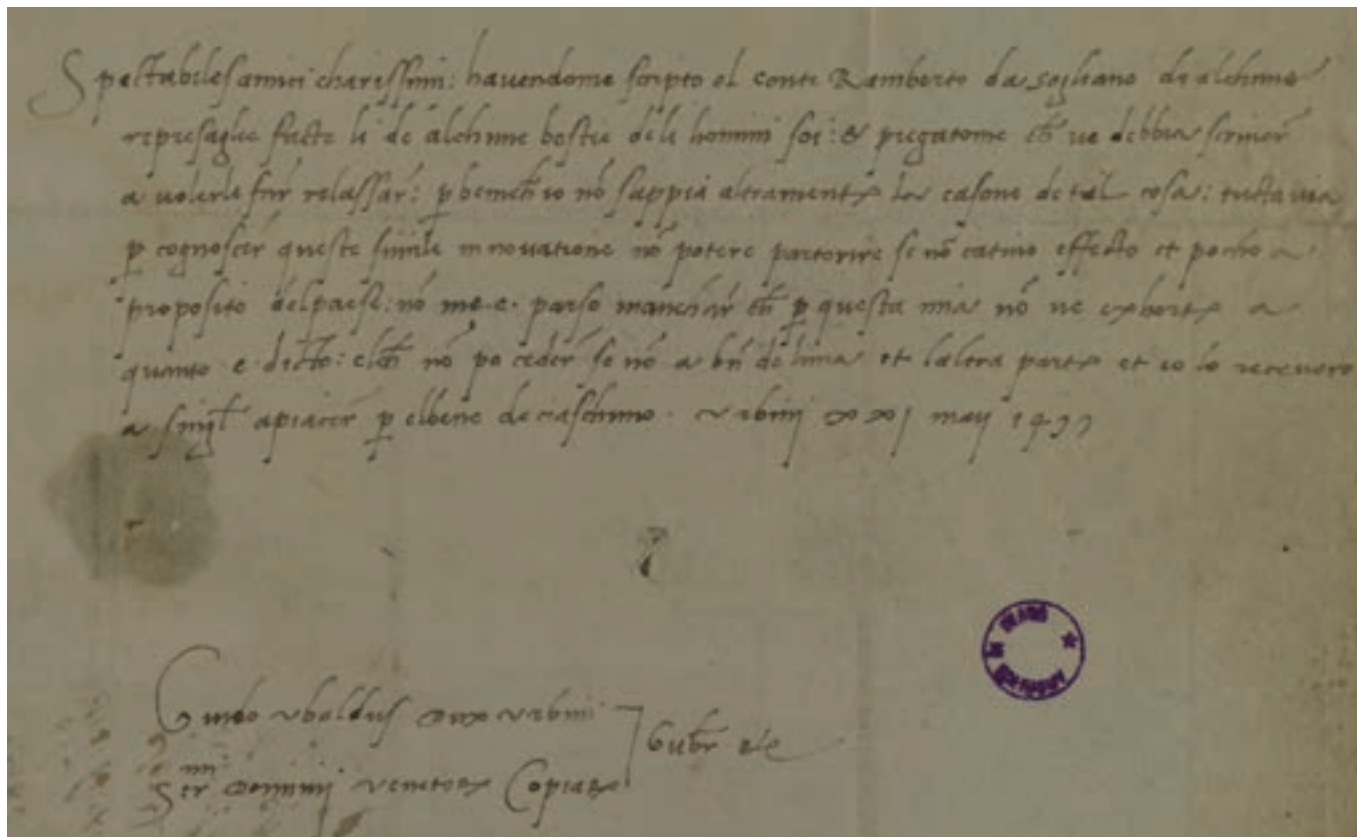 Spectabiles amici charissimi: havendome scripto el conte Ramberto da sogliano de alchune
represaglie facte li de alchune bestie deli homini soi: & pregatome ch̄ ve debbia scriver̄
a volerle far̄ relassar̄: p̄ bemch̄ io nō sappia altramente la casone de tal cosa: tuttavia
p̄ cognoscer̄ queste simile innovatione nō potere partorire se nō cativo effecto et pocho a
proposito del paese: nō me. e. parso manchar̄ ch̄ p̄ questa mia nō ve exhorte a
quanto e. dicto: elch̄ nō po ceder̄ se nō a bn̄ de luna et laltra parte et io lo recevero
a singl̄ apiacer̄ p̄ elbene de ciaschuno. Urbini xxj maij
Guido Ubaldus Dux Urbini
Ser̄mi Dominij Venetoꝝ Copiaꝝ
Gubr̄